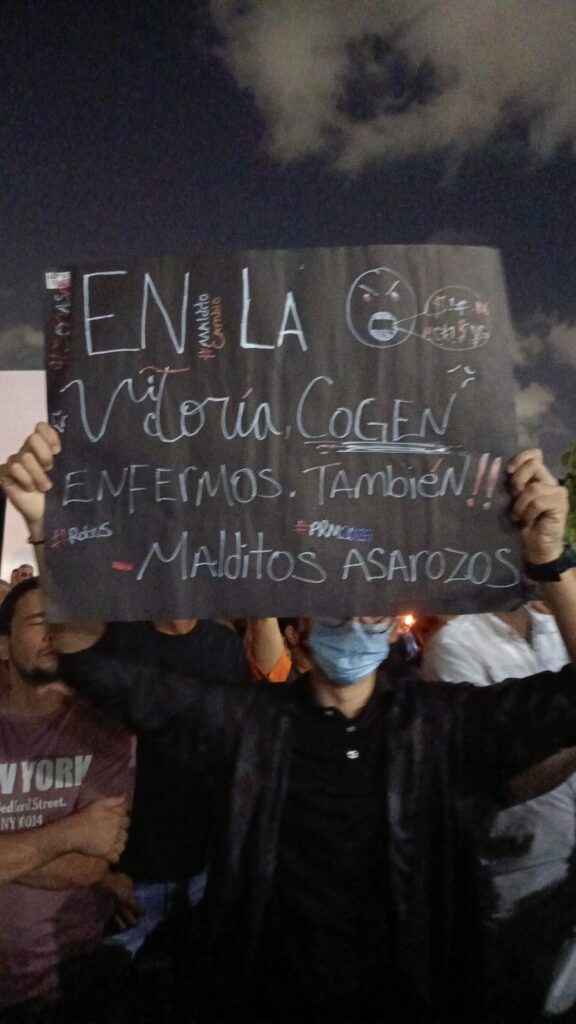 EN LA
#MAlDito
CAmbio
Victoría, COGEN
ENFErMOS. TambiéN!!
#Robos
- MAldiTOS ASArOZOS
W YORK
edford Street.